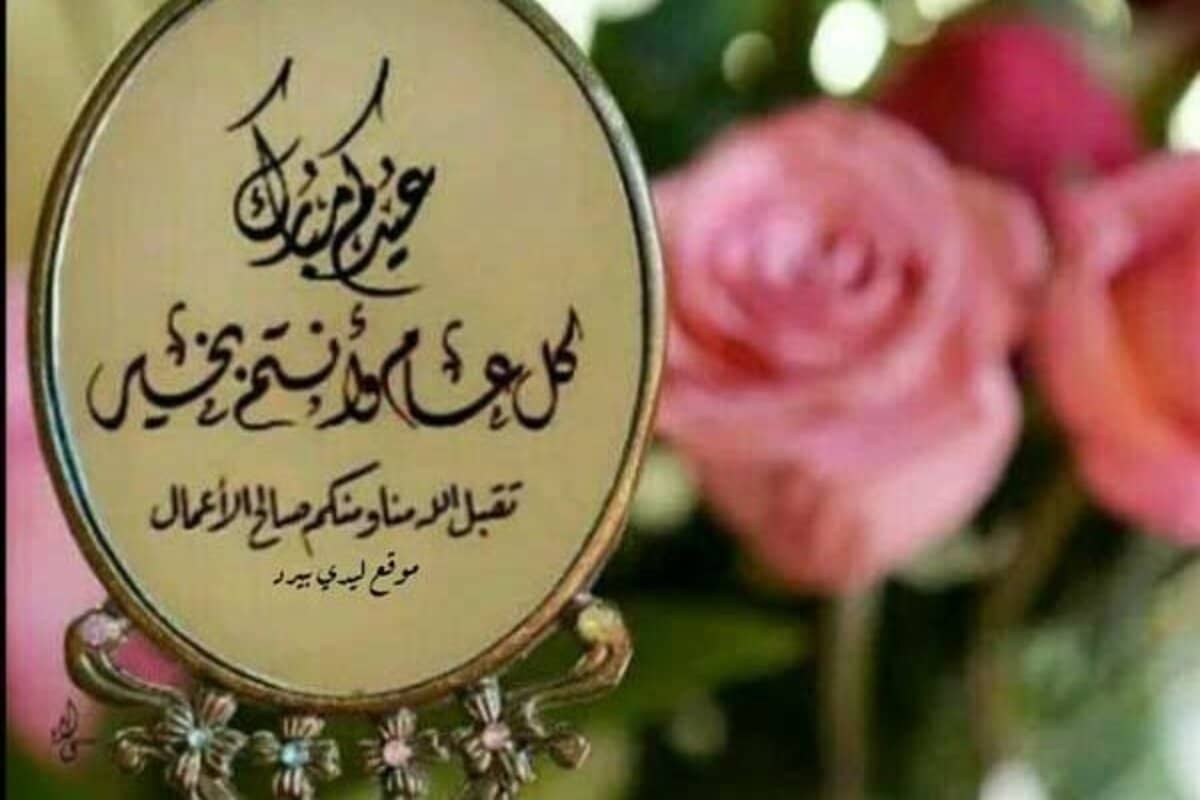 عيدكم مبارك
كل عام وأنتم بخير
تقبل الله منا ومنكم صالح الأعمال
موقع ليدي بيرد